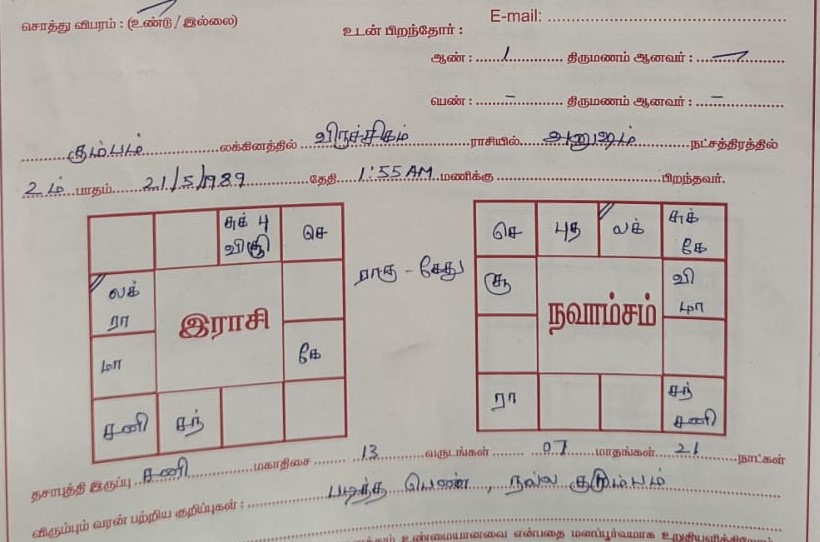 E-mail:
சொத்து விபரம் : (உண்டு / இல்லை)
உடன் பிறந்தோர் :
ஆண் : 1 திருமணம் ஆனவர் : –
பெண் : – திருமணம் ஆனவர் : –
கும்பம் லக்கினத்தில் விருச்சிகம் ராசியில் அனுஷம் நட்சத்திரத்தில்
2ம் பாதம் 21/5/1989 தேதி 1:55AM மணிக்கு பிறந்தவர்.
சுக் பு செ
விசூ
லக்
ரா
இராசி
மா கே
சனி சந்
ராகு - கேது
செ புத லக் சுக்
கே
சூ வி
மா
நவாம்சம்
ரா சந்
சனி
தசாபுத்தி இருப்பு சனி மகாதிசை 13 வருடங்கள் 07 மாதங்கள் 21 நாட்கள்
விரும்பும் வரன் பற்றிய குறிப்புகள் : படித்த பெண், நல்ல குடும்பம்
உண்மையானவை என்பதை மனப்பூர்வமாக உறுதியளிக்கிறேன்